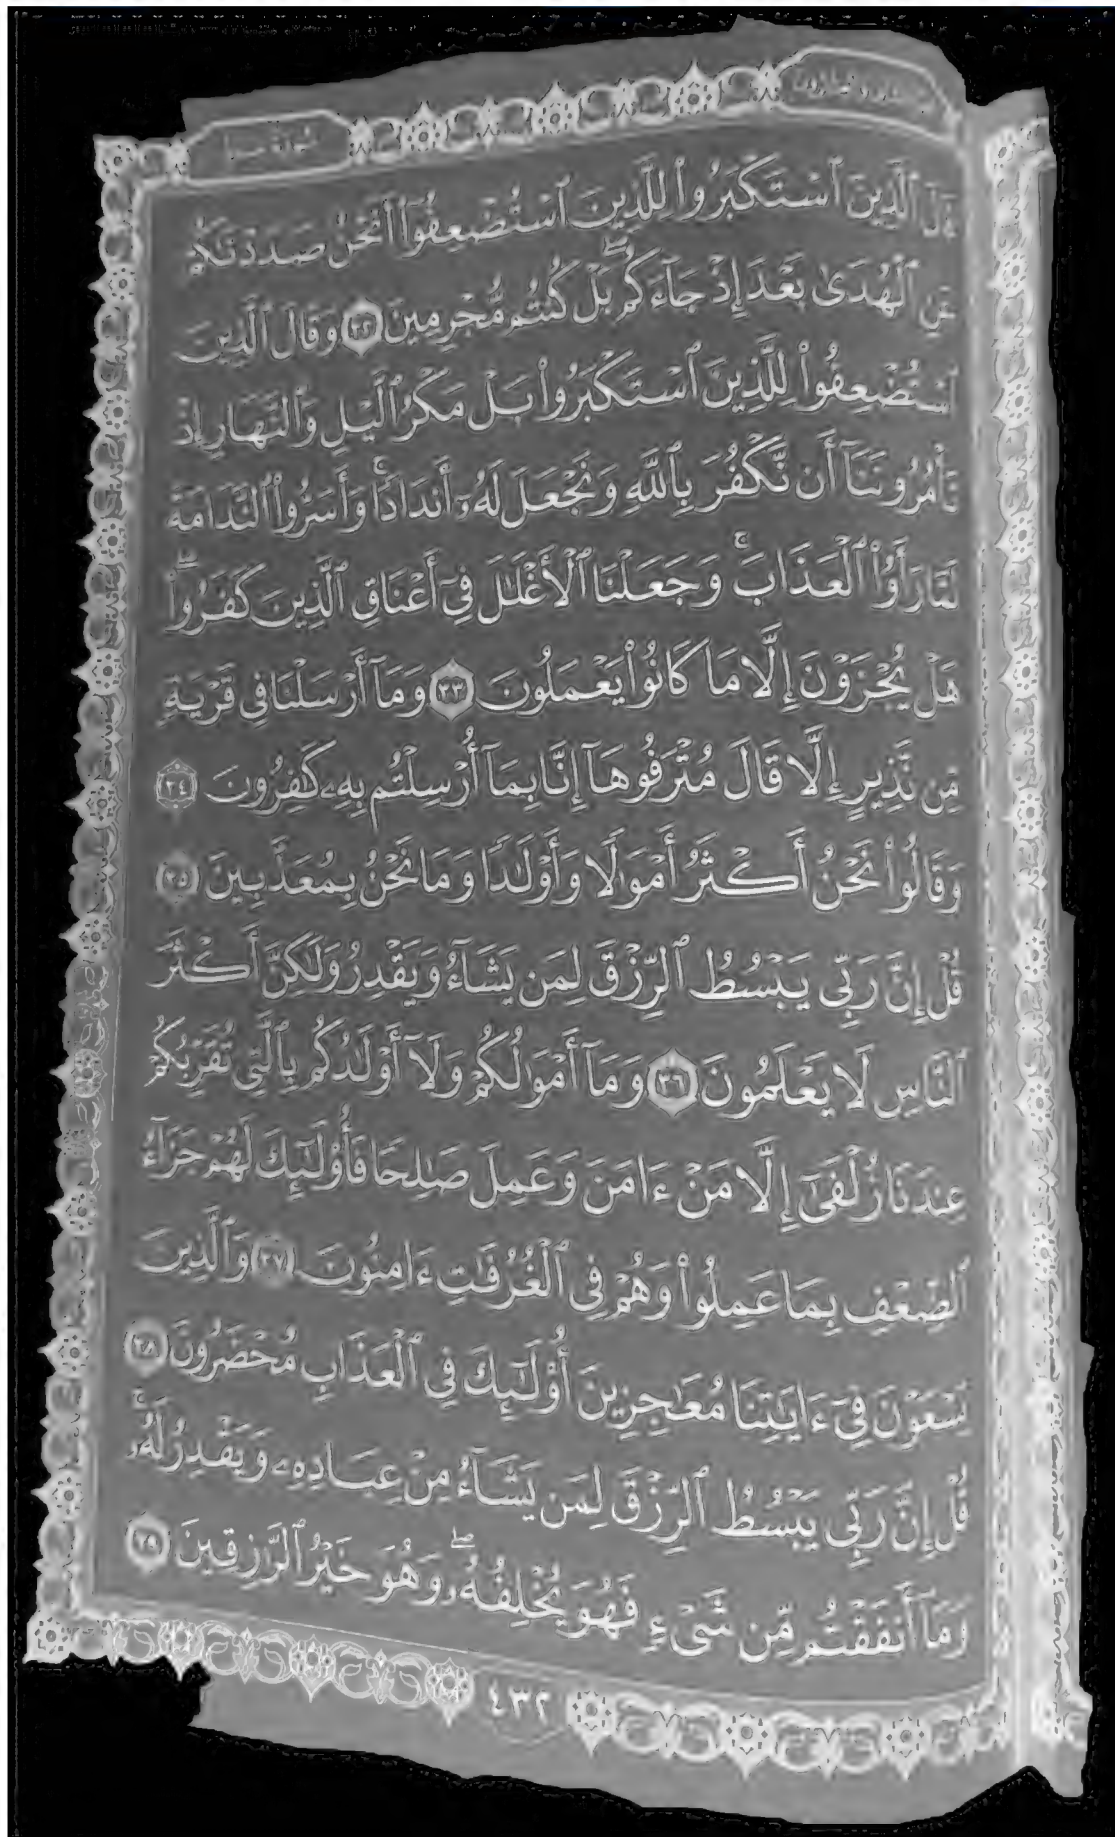 سورة سبإ
قَالَ ٱلَّذِينَ ٱسْتَكْبَرُوا۟ لِلَّذِينَ ٱسْتُضْعِفُوٓا۟ أَنَحْنُ صَدَدْنَٰكُمْ
عَنِ ٱلْهُدَىٰ بَعْدَ إِذْ جَآءَكُم ۖ بَلْ كُنتُم مُّجْرِمِينَ ٣٢ وَقَالَ ٱلَّذِينَ
ٱسْتُضْعِفُوا۟ لِلَّذِينَ ٱسْتَكْبَرُوا۟ بَلْ مَكْرُ ٱلَّيْلِ وَٱلنَّهَارِ إِذْ
تَأْمُرُونَنَآ أَن نَّكْفُرَ بِٱللَّهِ وَنَجْعَلَ لَهُۥٓ أَندَادًا ۚ وَأَسَرُّوا۟ ٱلنَّدَامَةَ
لَمَّا رَأَوُا۟ ٱلْعَذَابَ ۚ وَجَعَلْنَا ٱلْأَغْلَٰلَ فِىٓ أَعْنَاقِ ٱلَّذِينَ كَفَرُوا۟ ۖ
هَلْ يُجْزَوْنَ إِلَّا مَا كَانُوا۟ يَعْمَلُونَ ٣٣ وَمَآ أَرْسَلْنَا فِى قَرْيَةٍ
مِّن نَّذِيرٍ إِلَّا قَالَ مُتْرَفُوهَآ إِنَّا بِمَآ أُرْسِلْتُم بِهِۦ كَٰفِرُونَ ٣٤
وَقَالُوا۟ نَحْنُ أَكْثَرُ أَمْوَٰلًا وَأَوْلَٰدًا وَمَا نَحْنُ بِمُعَذَّبِينَ ٣٥
قُلْ إِنَّ رَبِّى يَبْسُطُ ٱلرِّزْقَ لِمَن يَشَآءُ وَيَقْدِرُ وَلَٰكِنَّ أَكْثَرَ
ٱلنَّاسِ لَا يَعْلَمُونَ ٣٦ وَمَآ أَمْوَٰلُكُمْ وَلَآ أَوْلَٰدُكُم بِٱلَّتِى تُقَرِّبُكُمْ
عِندَنَا زُلْفَىٰٓ إِلَّا مَنْ ءَامَنَ وَعَمِلَ صَٰلِحًا فَأُو۟لَٰٓئِكَ لَهُمْ جَزَآءُ
ٱلضِّعْفِ بِمَا عَمِلُوا۟ وَهُمْ فِى ٱلْغُرُفَٰتِ ءَامِنُونَ ٣٧ وَٱلَّذِينَ
يَسْعَوْنَ فِىٓ ءَايَٰتِنَا مُعَٰجِزِينَ أُو۟لَٰٓئِكَ فِى ٱلْعَذَابِ مُحْضَرُونَ ٣٨
قُلْ إِنَّ رَبِّى يَبْسُطُ ٱلرِّزْقَ لِمَن يَشَآءُ مِنْ عِبَادِهِۦ وَيَقْدِرُ لَهُۥ ۚ
وَمَآ أَنفَقْتُم مِّن شَىْءٍ فَهُوَ يُخْلِفُهُۥ ۖ وَهُوَ خَيْرُ ٱلرَّٰزِقِينَ ٣٩
٤٣٢